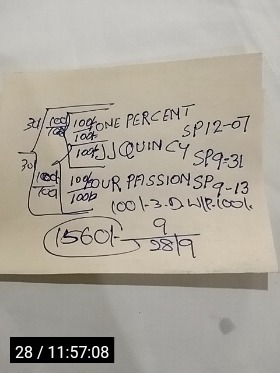 30 100/100 100% ONE PERCENT SP12-07
100%
100% JJ QUINCY SP9=31
30 100/100 100% OUR PASSION SP9-13
100%
100%-3.D W/P-100%.
1560% 9
2819
28 / 11:57:08